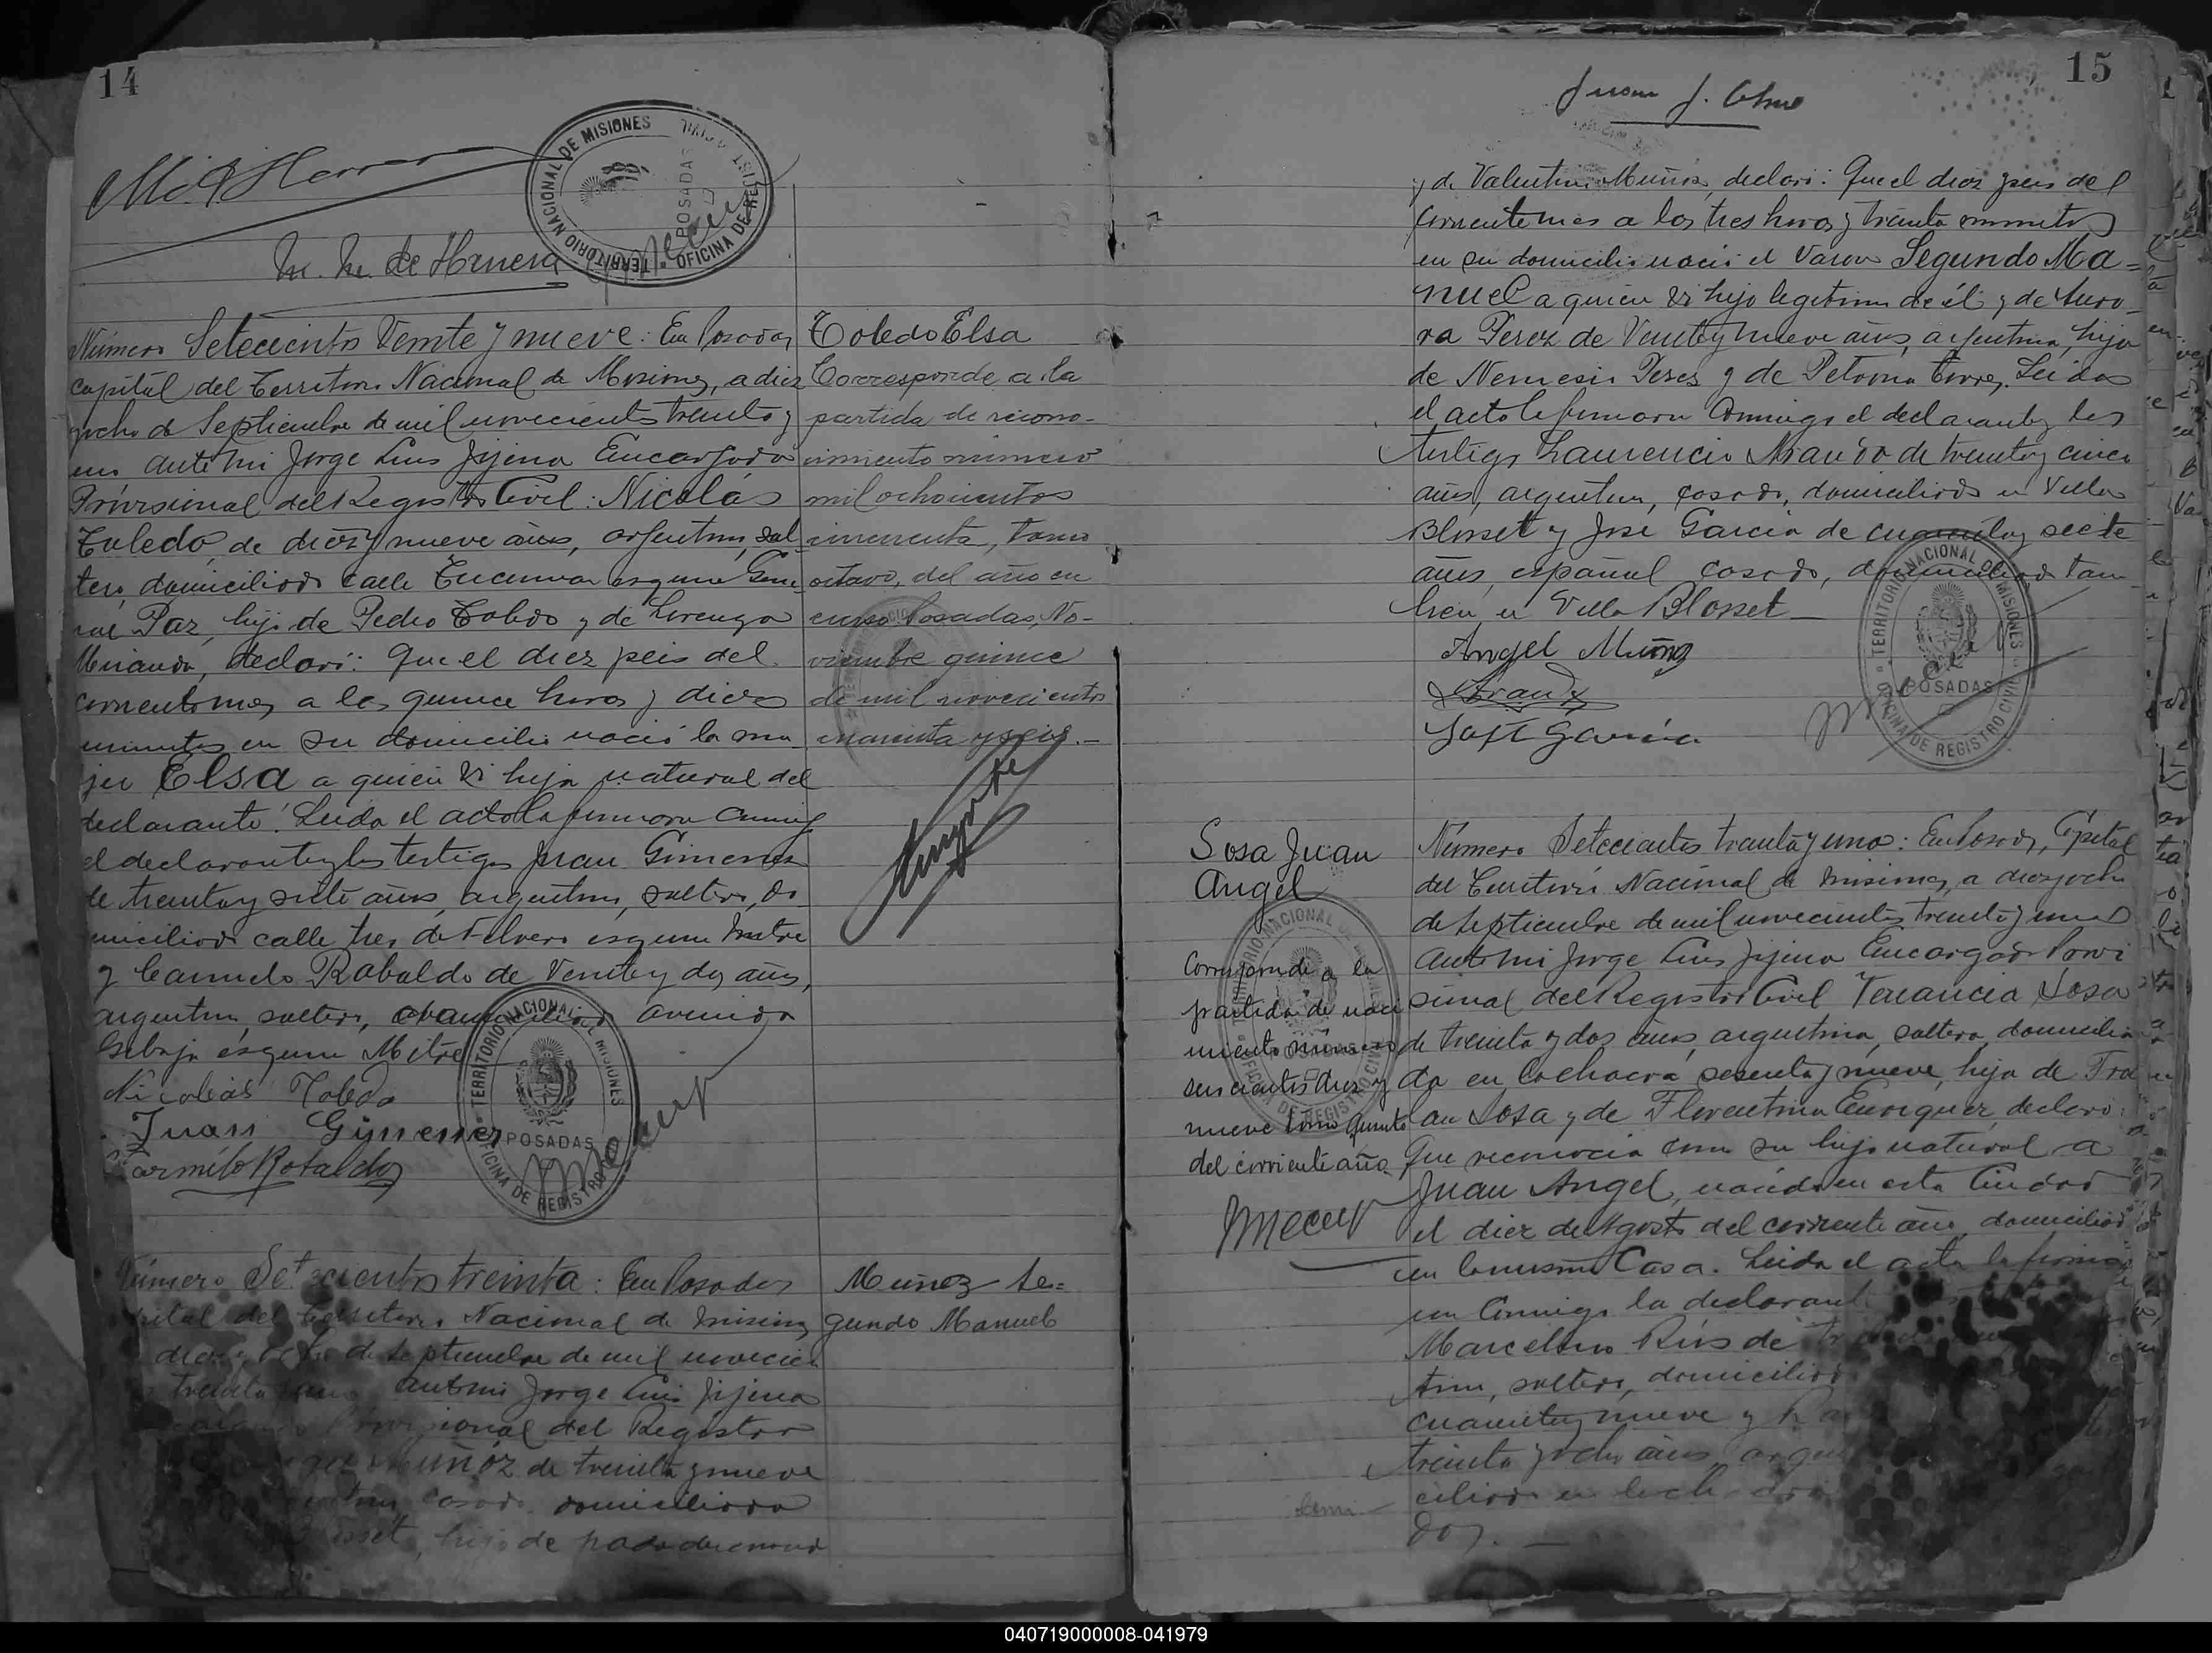 14
M. de Herrera
TERRITORIO NACIONAL DE MISIONES
POSADAS
OFICINA DE REGISTRO CIVIL
Número Setecientos Veinte y nueve: En Posadas,
capital del Territorio Nacional de Misiones, a diez
y ocho de Septiembre de mil novecientos treinta y
uno ante mi Jorge Luis Jijena Encargado
Provisional del Registro Civil: Nicolás
Toledo, de diez y nueve años, argentino, sol
tero, domiciliado calle Tucuman esquina Gene
ral Paz, hijo de Pedro Toledo y de Lorenza
Miranda, declaró: Que el diez y seis del
corriente mes a las quince horas y diez
minutos en su domicilio nació la mu
jer Elsa a quien es hija natural del
declarante. Leida el acta la firmaron conmigo
el declarante y los testigos Juan Gimenez
de treinta y siete años, argentino, soltero, do
miciliado calle tres de Febrero esquina Mitre
y Carmelo Robaldo de Veinte y dos años,
argentino, soltero, domiciliado avenida
esquina Mitre
Nicolás Toledo
Juan Gimenez
TERRITORIO NACIONAL DE MISIONES
POSADAS
OFICINA DE REGISTRO CIVIL
Toledo Elsa
Corresponde a la
partida de recono-
cimiento número
mil ochocientos
cincuenta, tomo
octavo, del año en
curso Posadas, No-
viembre quince
de mil novecientos
cuarenta y seis.-
Número Setecientos treinta: En Posadas
capital del Territorio Nacional de Misiones
diez y ocho de Septiembre de mil novecien
treinta y uno ante mi Jorge Luis Jijena
Provisional del Registro
Muñóz de treinta y nueve
casado domiciliado
hijo de padre desconocido
Muñoz Se=
gundo Manuel
15
Juan J.
y de Valentina Muñoz, declaró: Que el diez y seis del
corriente mes a las tres horas y treinta minutos
en su domicilio nació el Varon Segundo Ma=
nuel a quien es hijo legitimo de él y de Auro
ra Perez de Veinte y nueve años, argentina, hija
de Nemesio Peres y de Petrona Torres. Leida
el acta la firmaron conmigo el declarante y los
testigos Laurencio Aranda de treinta y cinco
años, argentino, casado, domiciliado en Villa
Blosset y José Garcia de cuarenta y siete
años, español, casado, domiciliado tam
bien en Villa Blosset
Angel Muñoz
José Garcia
TERRITORIO NACIONAL DE MISIONES
POSADAS
OFICINA DE REGISTRO CIVIL
Sosa Juan
Angel
Corresponde a la
partida de naci
miento número
seiscientos diez y
nueve tomo quinto
del corriente año
Número Setecientos treinta y uno: En Posadas, Capital
del Territorio Nacional de Misiones, a diez y ocho
de Septiembre de mil novecientos treinta y uno
ante mi Jorge Luis Jijena Encargado Provi
sional del Registro Civil Venancia Sosa
de treinta y dos años, argentina, soltera, domicilia
da en Lachacra sesenta y nueve, hija de
Sosa y de Florentina Enriquez, declaró:
Que reconocia como su hijo natural a
Juan Angel, nacido en esta Ciudad
el diez de Agosto del corriente año, domiciliado
en la misma Casa. Leida el acta la firma
con Conmigo la declarante
Marcelino Rios de
tino, soltero, domiciliado
cuarenta y nueve y
treinta y ocho años,
ciliado en
dos.
040719000008-041979